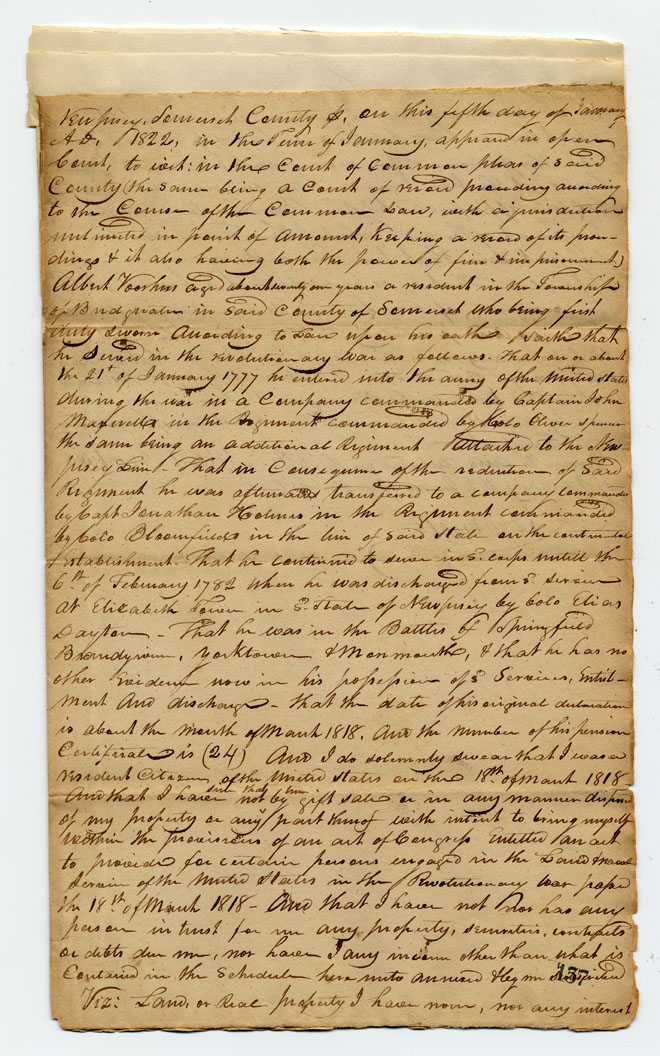 New Jersey, Somerset County ss, on this fifth day of January
A D, 1822, in the Term of January, appeared in open
Court, to wit: in the Court of Common pleas of said
County (the same being a Court of record proceeding according
to the Course of the Common Law, with a jurisdiction
unlimited in point of amount, Keeping a record of its procee-
dings & it also having both the power of fine & imprisonment)
Albert Voorhees aged about seventy one years a resident in the Township
of Bridgwater in said County of Somerset who being first
duly sworn according to Law upon his oath saith that
he served in the revolutionary War as follows. That on or about
the 21st of January 1777 he entered into the army of the United States
during the war in a Company commanded by Captain John
in the Regiment commanded by Colo Oliver Spencer
the same being an additional Regiment attached to the New-
jersey Line. That in Consequence of the reduction of said
Regiment he was afterwards transferred to a company commanded
by Capt Jonathan Holmes in the Regiment commanded
by Colo Bloomfield in the line of said State on the continental
Establishment. That he continued to serve in sd. corps untill the
6th of February 1782 when he was discharged from sd. service
at Elizabeth Town in sd. State of New jersey by Colo Elias
Dayton - That he was in the Battles of Springfield
Brandywine, Yorktown & Monmouth, & that he has no
other Evidence now in his possession of sd Services, Enlist-
ment And discharge - that the date of his original declaration
is about the month of March 1818. And the number of his pension
Certificate is (24) And I do solemnly swear that I was a
resident Citizen of the United States on the 18th. of March 1818
And that I have not since that time by gift sale or in any manner disposed
of my property or any part thereof with intent to bring myself
within the provisions of an act of Congress Entitled an act
to provide for certain persons engaged in the Land & naval
Service of the United States in the Revolutionary war passed
the 18th. of March 1818 - And that I have not nor has any
person in trust for me any property, securities, contracts
or debts due me, nor have I any income other than what is
Contained in the Schedule here unto annexed & by me
137
Viz: Land, or Real property I have none, nor any interest